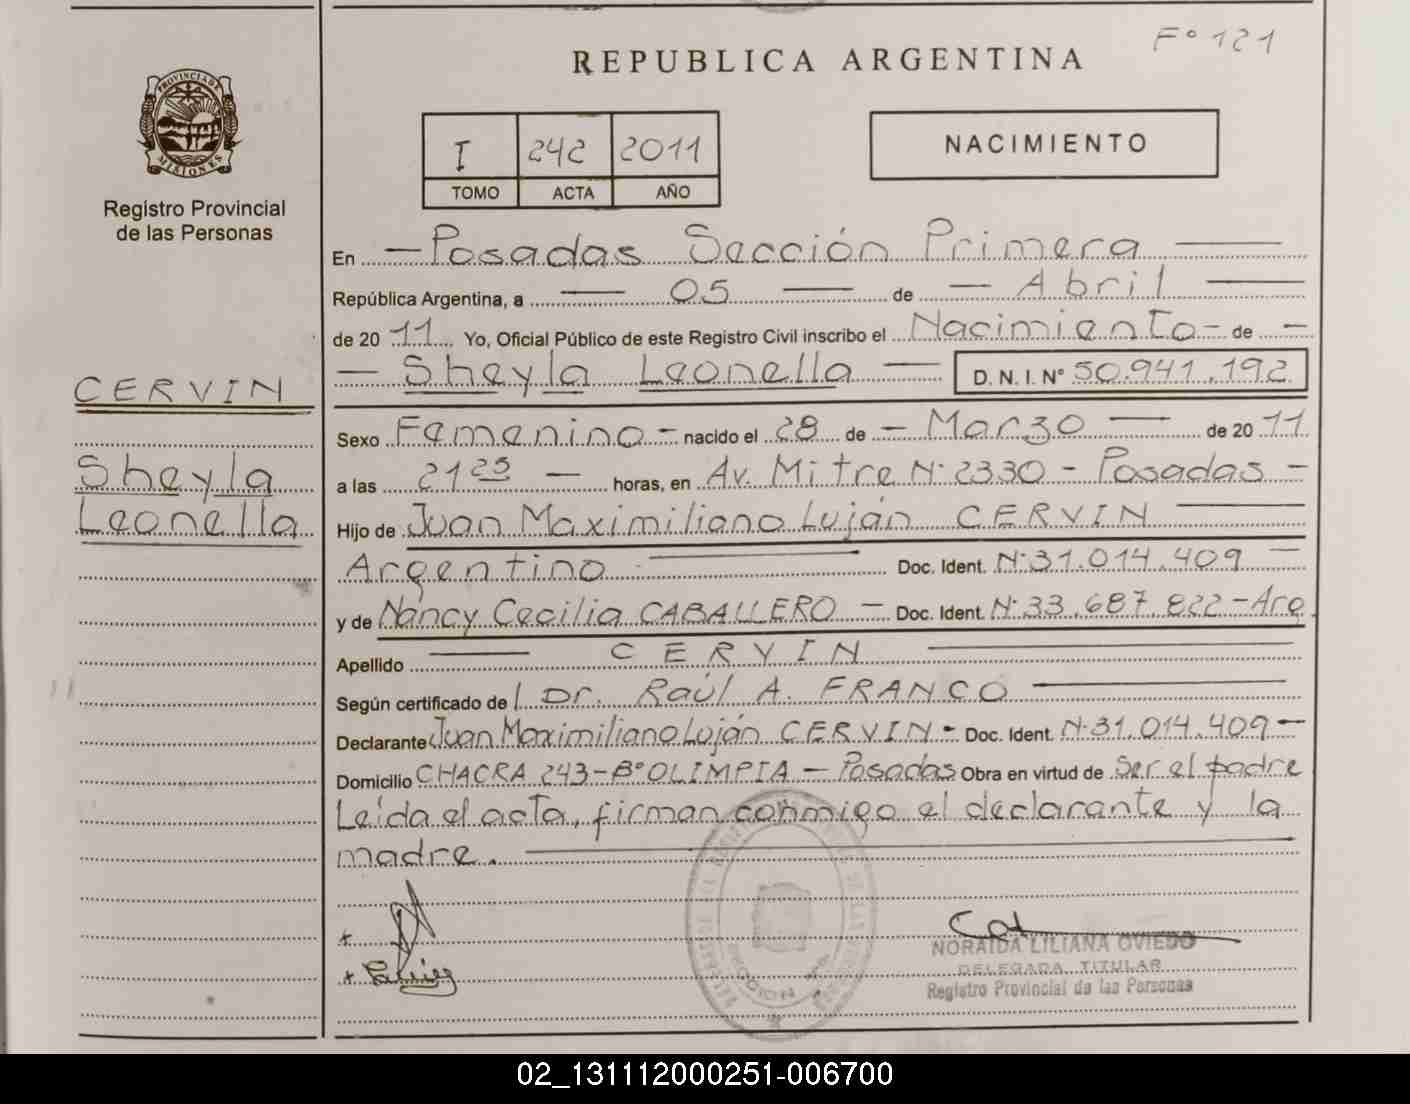 Fº 121
REPUBLICA ARGENTINA
PROVINCIA DE
MISIONES
Registro Provincial
de las Personas
I 242 2011
TOMO ACTA AÑO
NACIMIENTO
En — Posadas Sección Primera —
República Argentina, a — 05 — de — Abril —
de 20 11 Yo, Oficial Público de este Registro Civil inscribo el Nacimiento - de —
— Sheyla Leonella — D. N. I. Nº 50.941.192
CERVIN
Sheyla
Leonella
Sexo Femenino - nacido el 28 de — Marzo — de 20 11
a las 21 25 — horas, en Av. Mitre Nº 2330 - Posadas -
Hijo de Juan Maximiliano Luján CERVIN —
Argentino — Doc. Ident. Nº 31.014.409 —
y de Nancy Cecilia CABALLERO — Doc. Ident. Nº 33.687.822 - Arg
Apellido — CERVIN —
Según certificado de Dr. Raúl A. FRANCO —
Declarante Juan Maximiliano Luján CERVIN - Doc. Ident. Nº 31.014.409 —
Domicilio CHACRA 243 - Bº OLIMPIA — Posadas Obra en virtud de Ser el padre
Leída el acta, firman conmigo el declarante y la
madre. —
NORAIDA LILIANA OVIEDO
DELEGADA TITULAR
Registro Provincial de las Personas
02_131112000251-006700